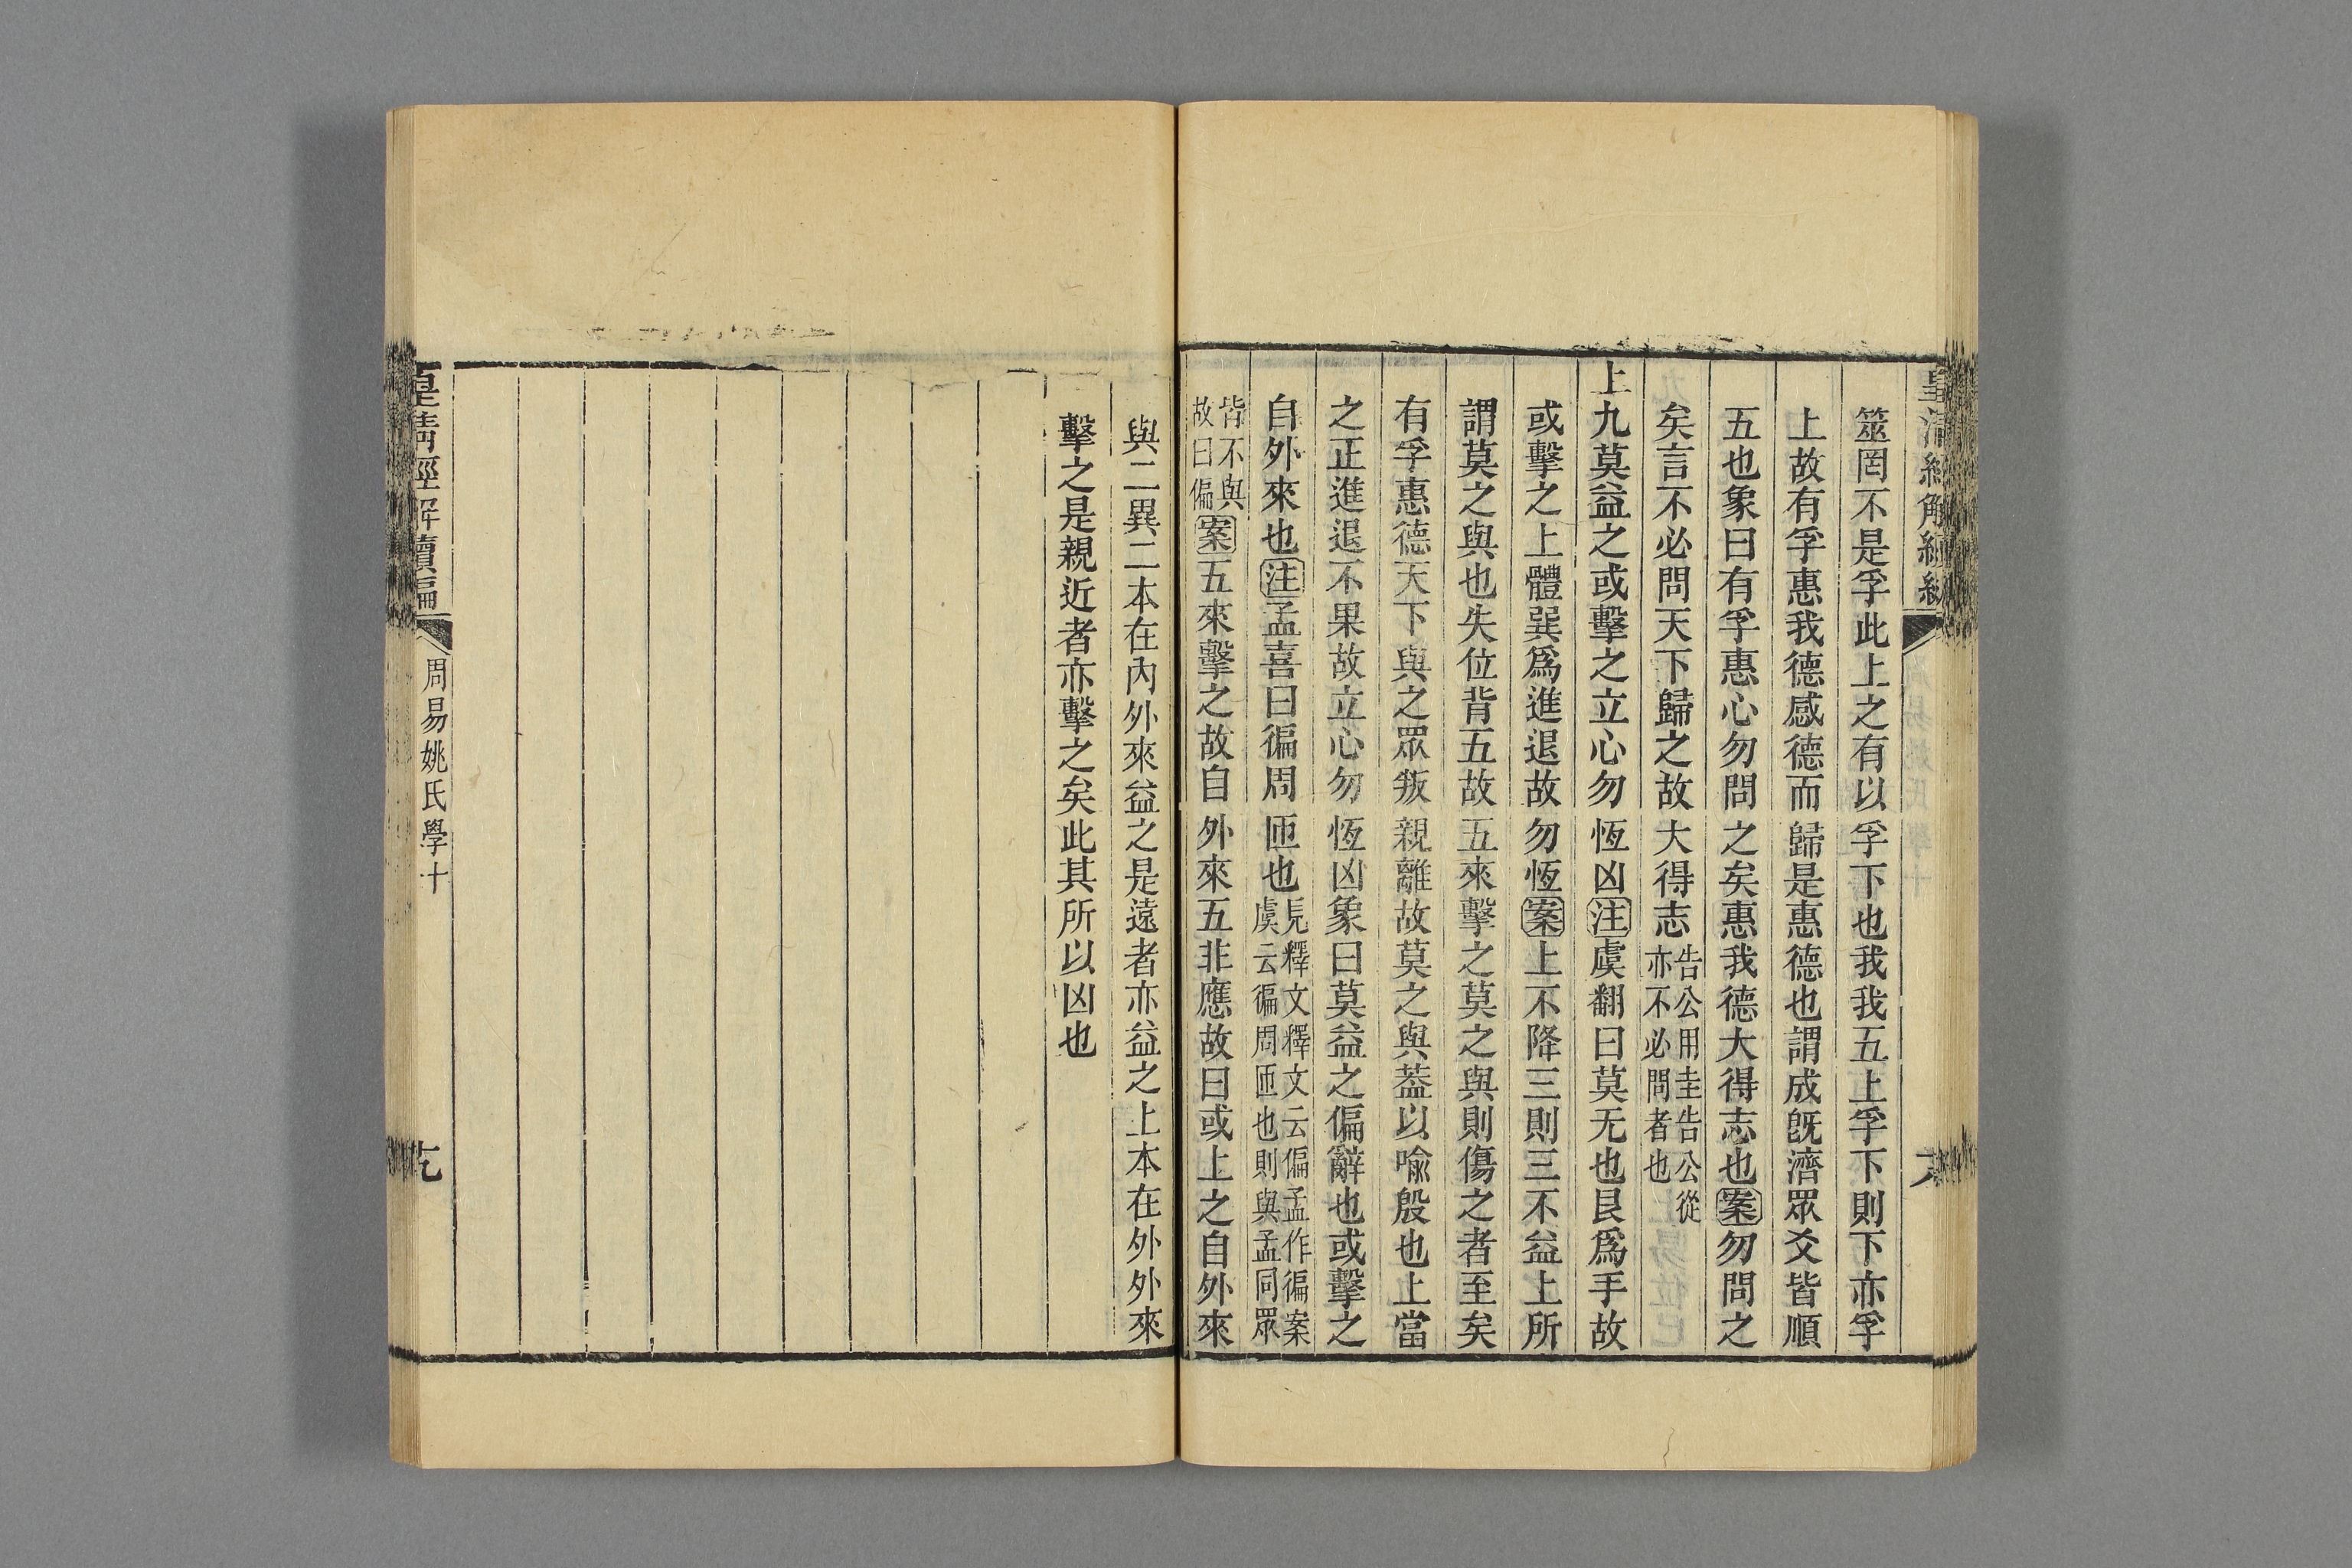 皇清經解續編
筮罔不是孚此上之有以孚下也我我五上孚下則下亦孚
上故有孚惠我德感德而歸是惠德也謂成旣濟眾爻皆順
五也象曰有孚惠心勿問之矣惠我德大得志也案勿問之
矣言不必問天下歸之故大得志告公用圭告公從亦不必問者也
上九莫益之或擊之立心勿恆凶注虞翻曰莫无也艮爲手故
或擊之上體巽爲進退故勿恆案上不降三則三不益上所
謂莫之與也失位背五故五來擊之莫之與則傷之者至矣
有孚惠德天下與之眾叛親離故莫之與葢以喻殷也上當
之正進退不果故立心勿恆凶象曰莫益之偏辭也或擊之
自外來也注孟喜曰徧周匝也見釋文釋文云偏孟作徧案虞云徧周匝也則與孟同眾
皆不與故曰偏案五來擊之故自外來五非應故曰或上之自外來
與二異二本在內外來益之是遠者亦益之上本在外外來
擊之是親近者亦擊之矣此其所以凶也
皇清經解續編
周易姚氏學十